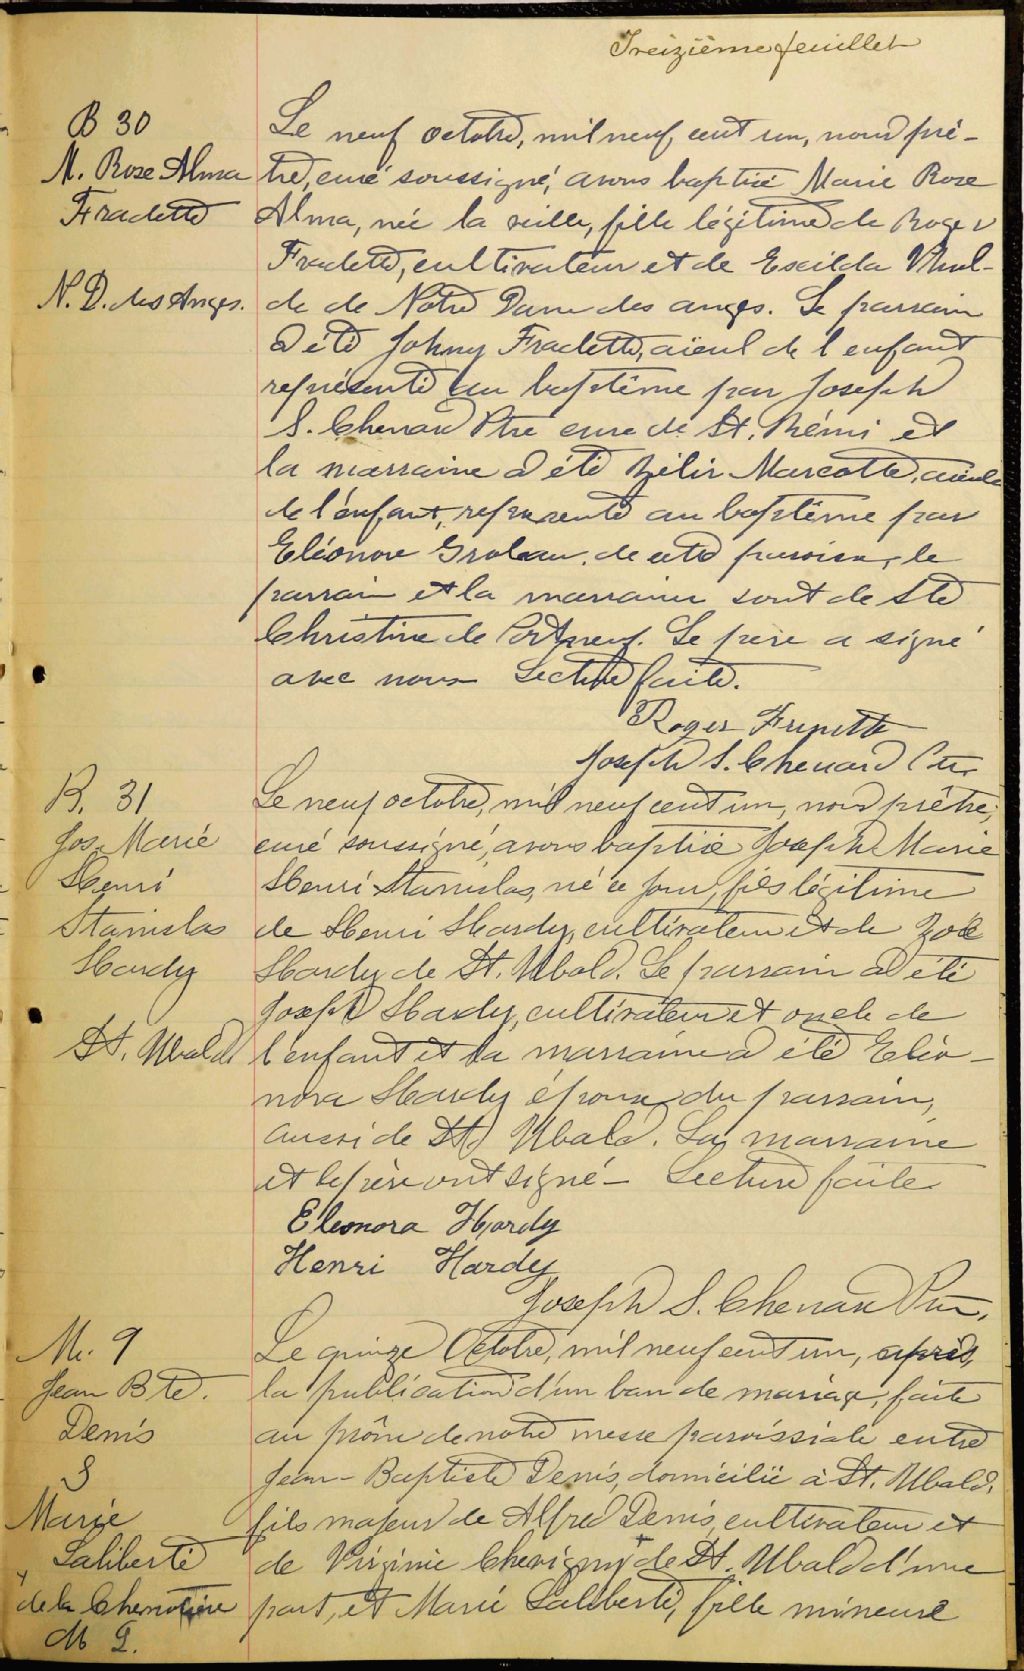 Treizième feuillet
B 30
M. Rose Alma
Fradette
N. D. des Anges.
Le neuf octobre, mil neuf cent un, nous prê-
tre, curé soussigné, avons baptisé Marie Rose
Alma, née la veille, fille légitime de Roger
Fradette, cultivateur et de Exilda
de de Notre Dame des anges. Le parrain
a été Johny Fradette, aïeul de l'enfant
représenté au baptême par Joseph
S. Chenard Ptre curé de St. Rémi et
la marraine a été Marcotte, aieule
de l'enfant, representé au baptême par
Eléonore Groleau, de cette paroisse, le
parrain et la marraine sont de Ste
Christine de Portneuf. Le père a signé
avec nous Lecture faite.
Roger
Joseph S. Chenard Ptre
B. 31
Jos. Marie
Henri
Stanislas
Hardy
St. Ubald
Le neuf octobre, mil neuf cent un, nous prêtre,
curé soussigné, avons baptisé Joseph Marie
Henri Stanislas, né ce jour, fils légitime
de Henri Hardy, cultivateur et de Zoé
Hardy de St. Ubald. Le parrain a été
Joseph Hardy, cultivateur et oncle de
l'enfant et la marraine a été Eléo-
nora Hardy épouse du parrain,
aussi de St. Ubald. La marraine
et le père ont signé - Lecture faite
Eleonora Hardy
Henri Hardy
Joseph S. Chenard Ptre.
M. 9
Jean Bte.
Denis
&
Marie
Laliberté
+ de la Chevrotière
M L.
Le quinze Octobre, mil neuf cent un, après
la publication d'un ban de mariage, faite
au prône de notre messe paroissiale entre
Jean-Baptiste Denis, domicilié à St. Ubald,
fils majeur de Alfred Denis, cultivateur et
de Virginie Chevigny + de St. Ubald d'une
part, et Marie Laliberté, fille mineure